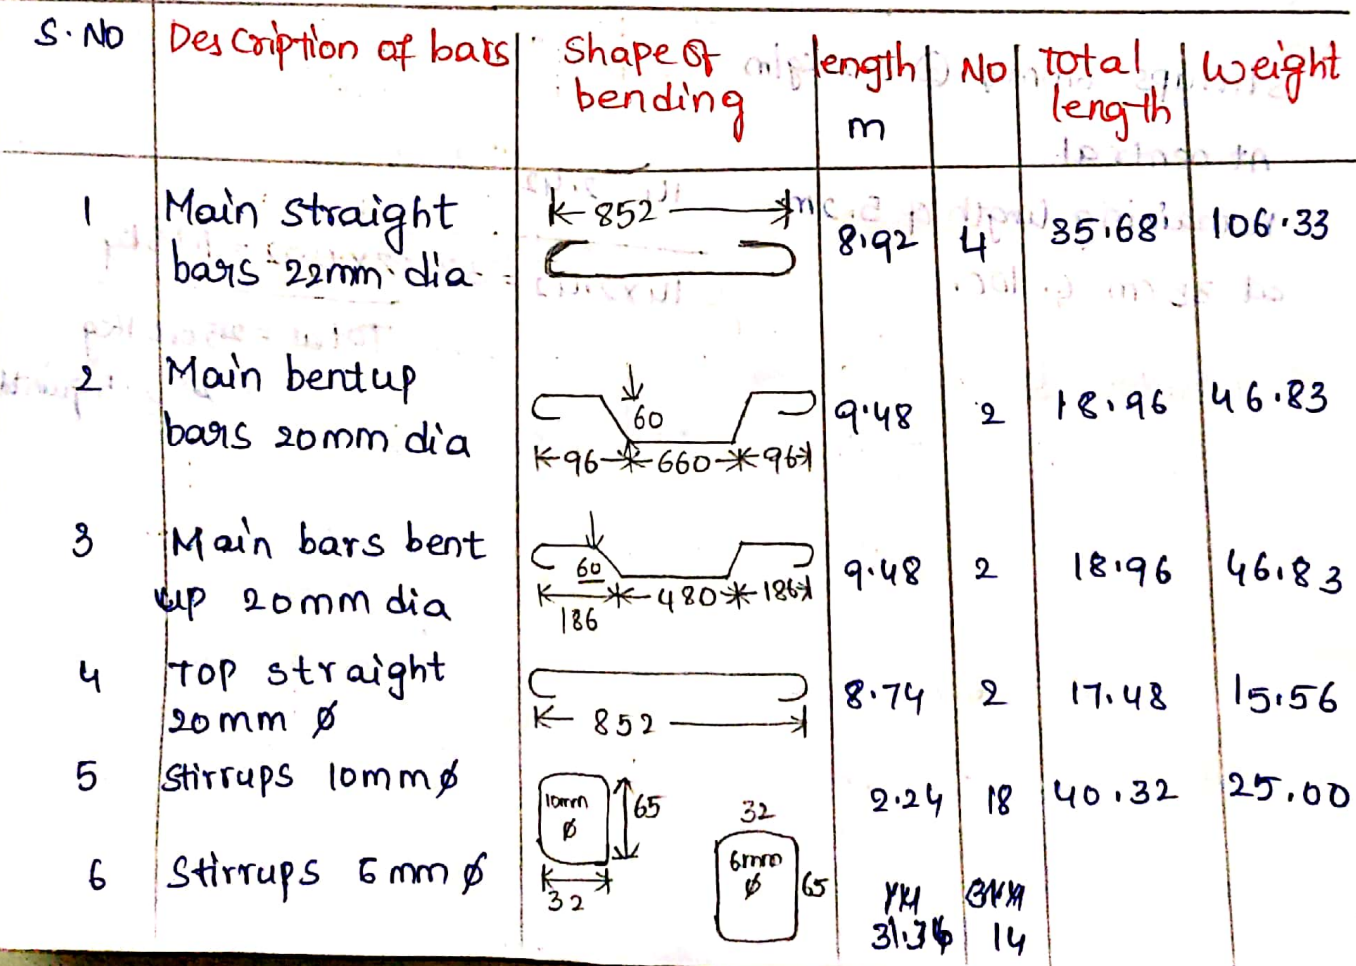 S.No Description of bars Shape of bending length m No Total length Weight
1 Main straight bars 22mm dia 852 8.92 4 35.68 106.33
2 Main bentup bars 20mm dia 60 96 660 96 9.48 2 18.96 46.83
3 Main bars bent up 20mm dia 60 186 480 186 9.48 2 18.96 46.83
4 Top straight 20mm ø 852 8.74 2 17.48 15.56
5 Stirrups 10mm ø 10mm ø 65 32 2.24 18 40.32 25.00
6 Stirrups 6mm ø 32 6mm ø 65 14